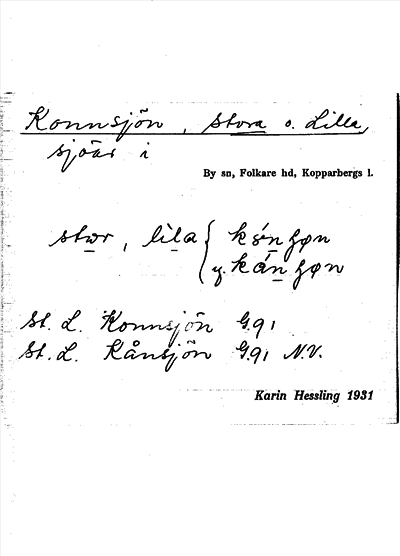 Konnsjön, stora o. Lilla,
sjöar i
By sn, Folkare hd, Kopparbergs l.
stωr, lila { kσ́nʃøn
y. kánʃøn
St. L. Konnsjön G.91
St. L. Kånsjön G.91 N.V.
Karin Hessling 1931